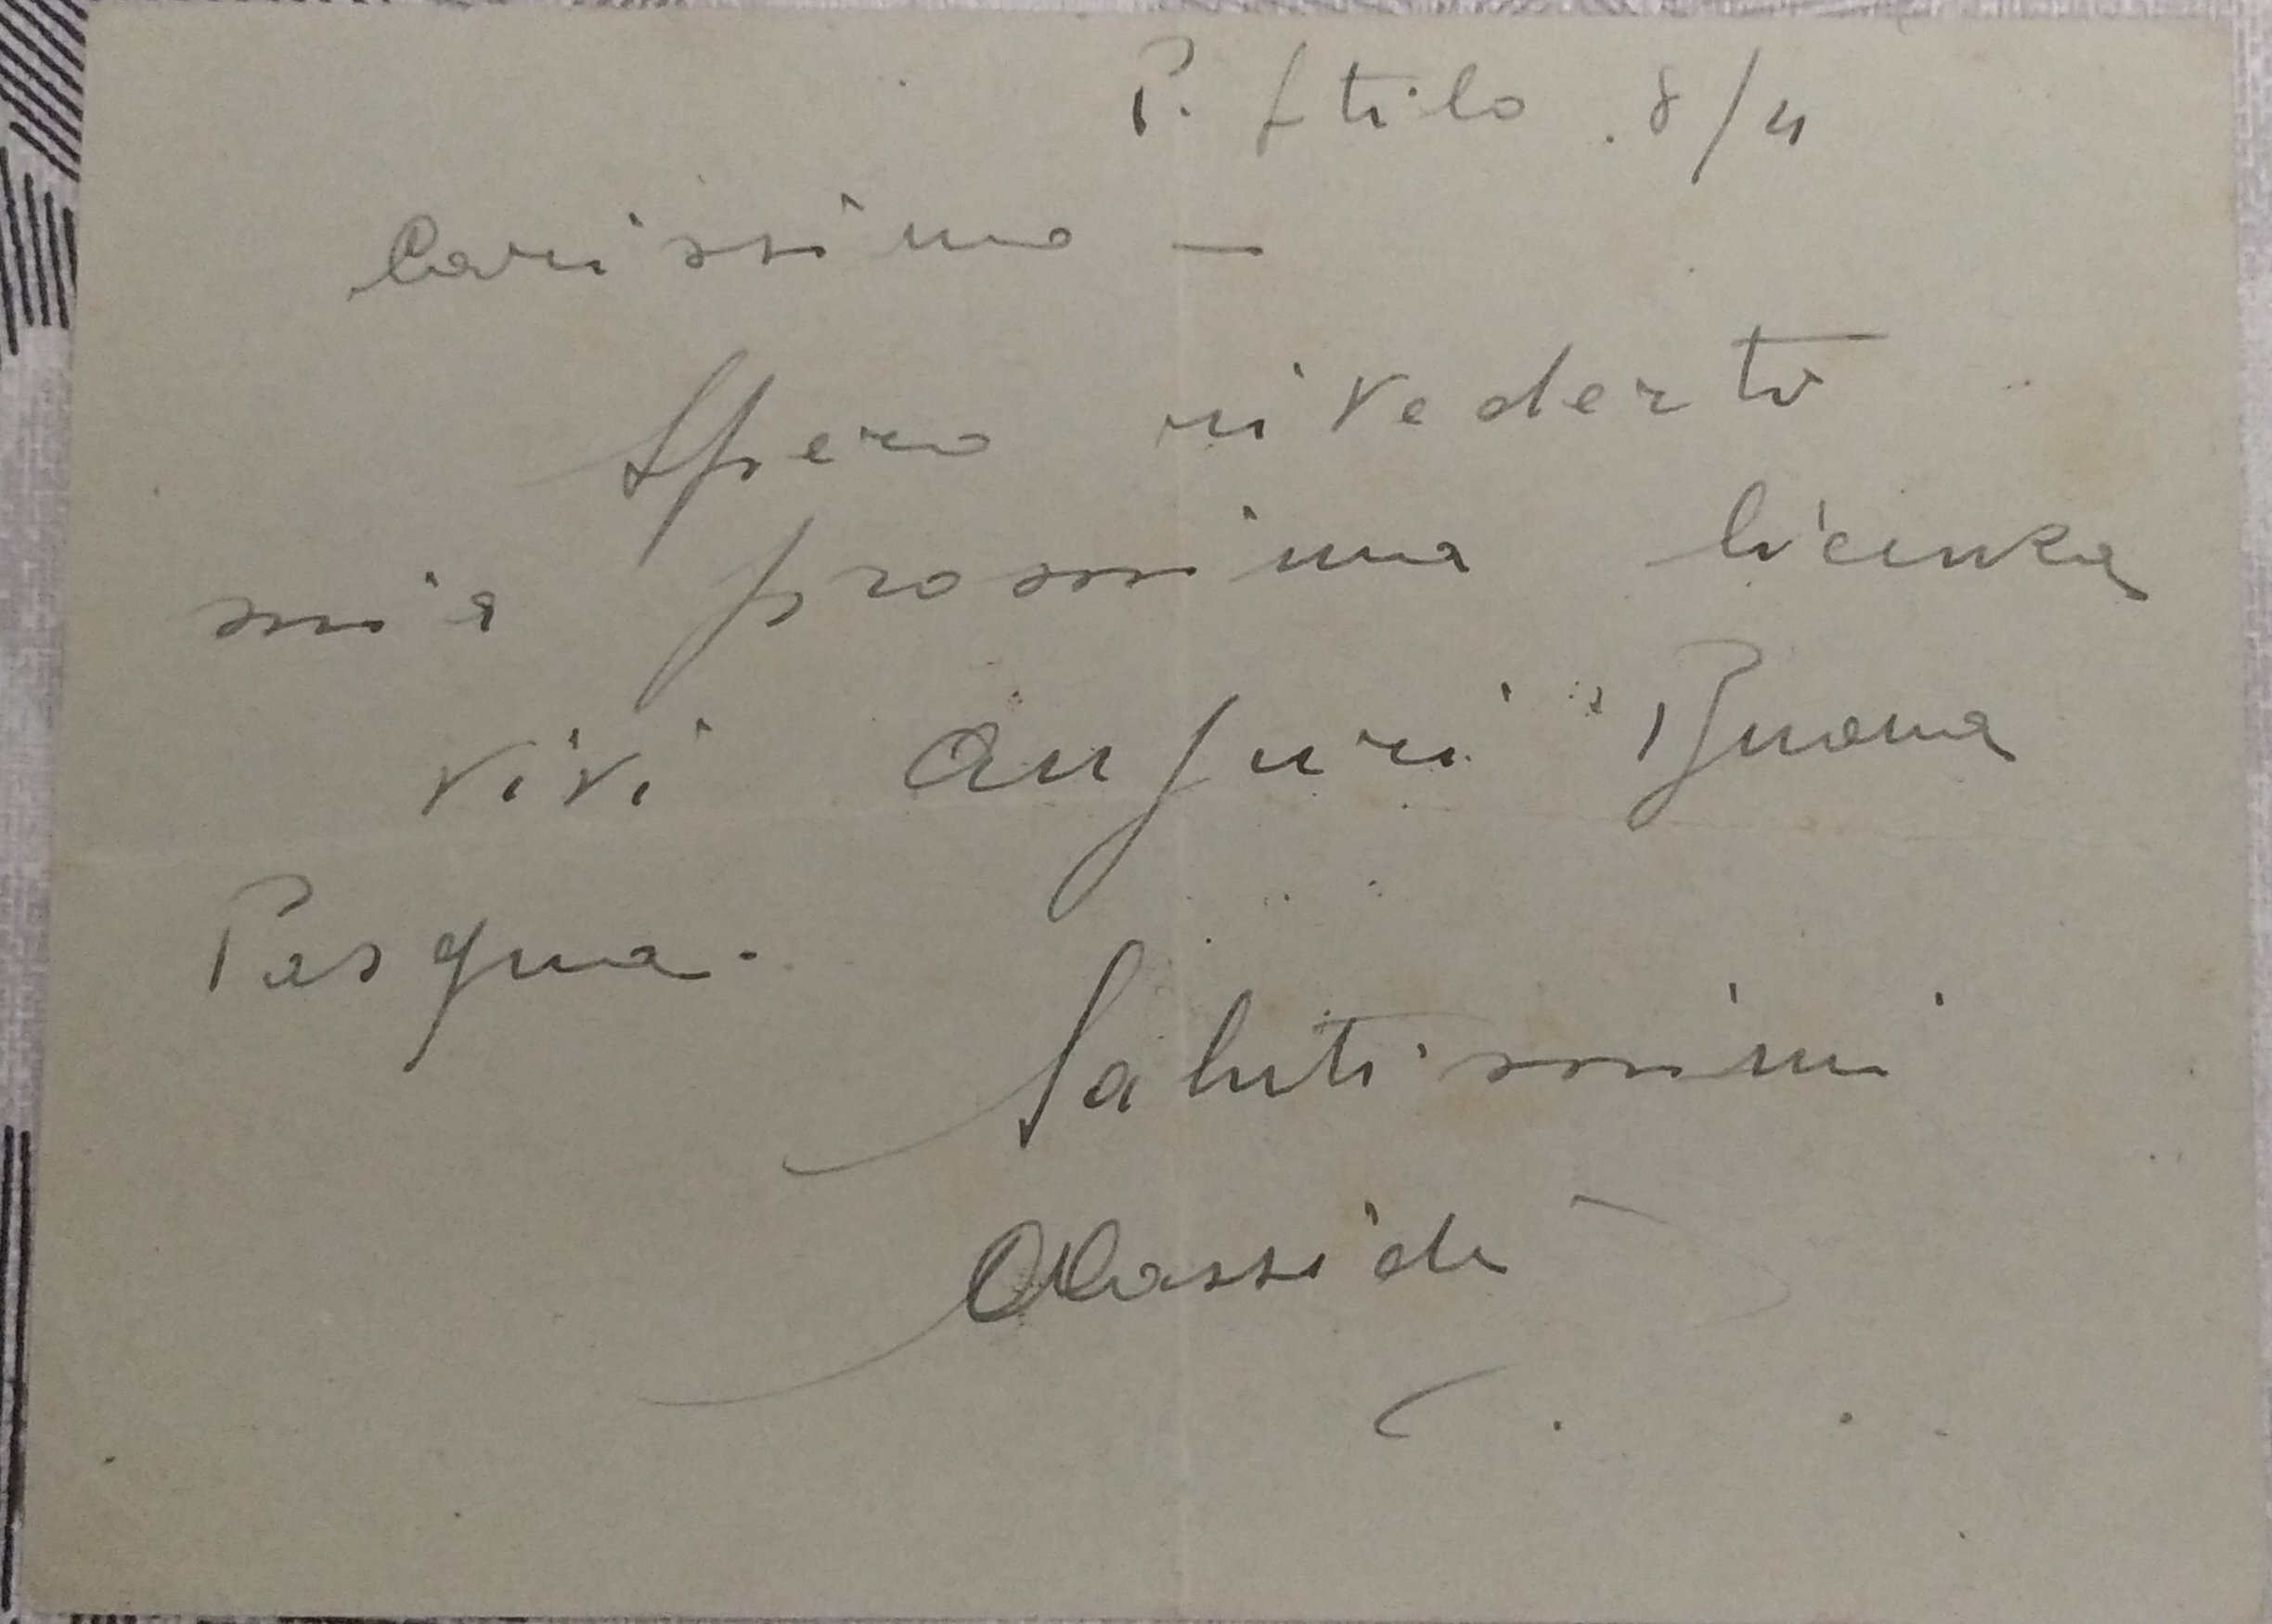 P. Stilo 8/4
Carissimo —
Spero rivederti
mia prossima licenza
vivi auguri Buona
Pasqua.
Saluti mimi